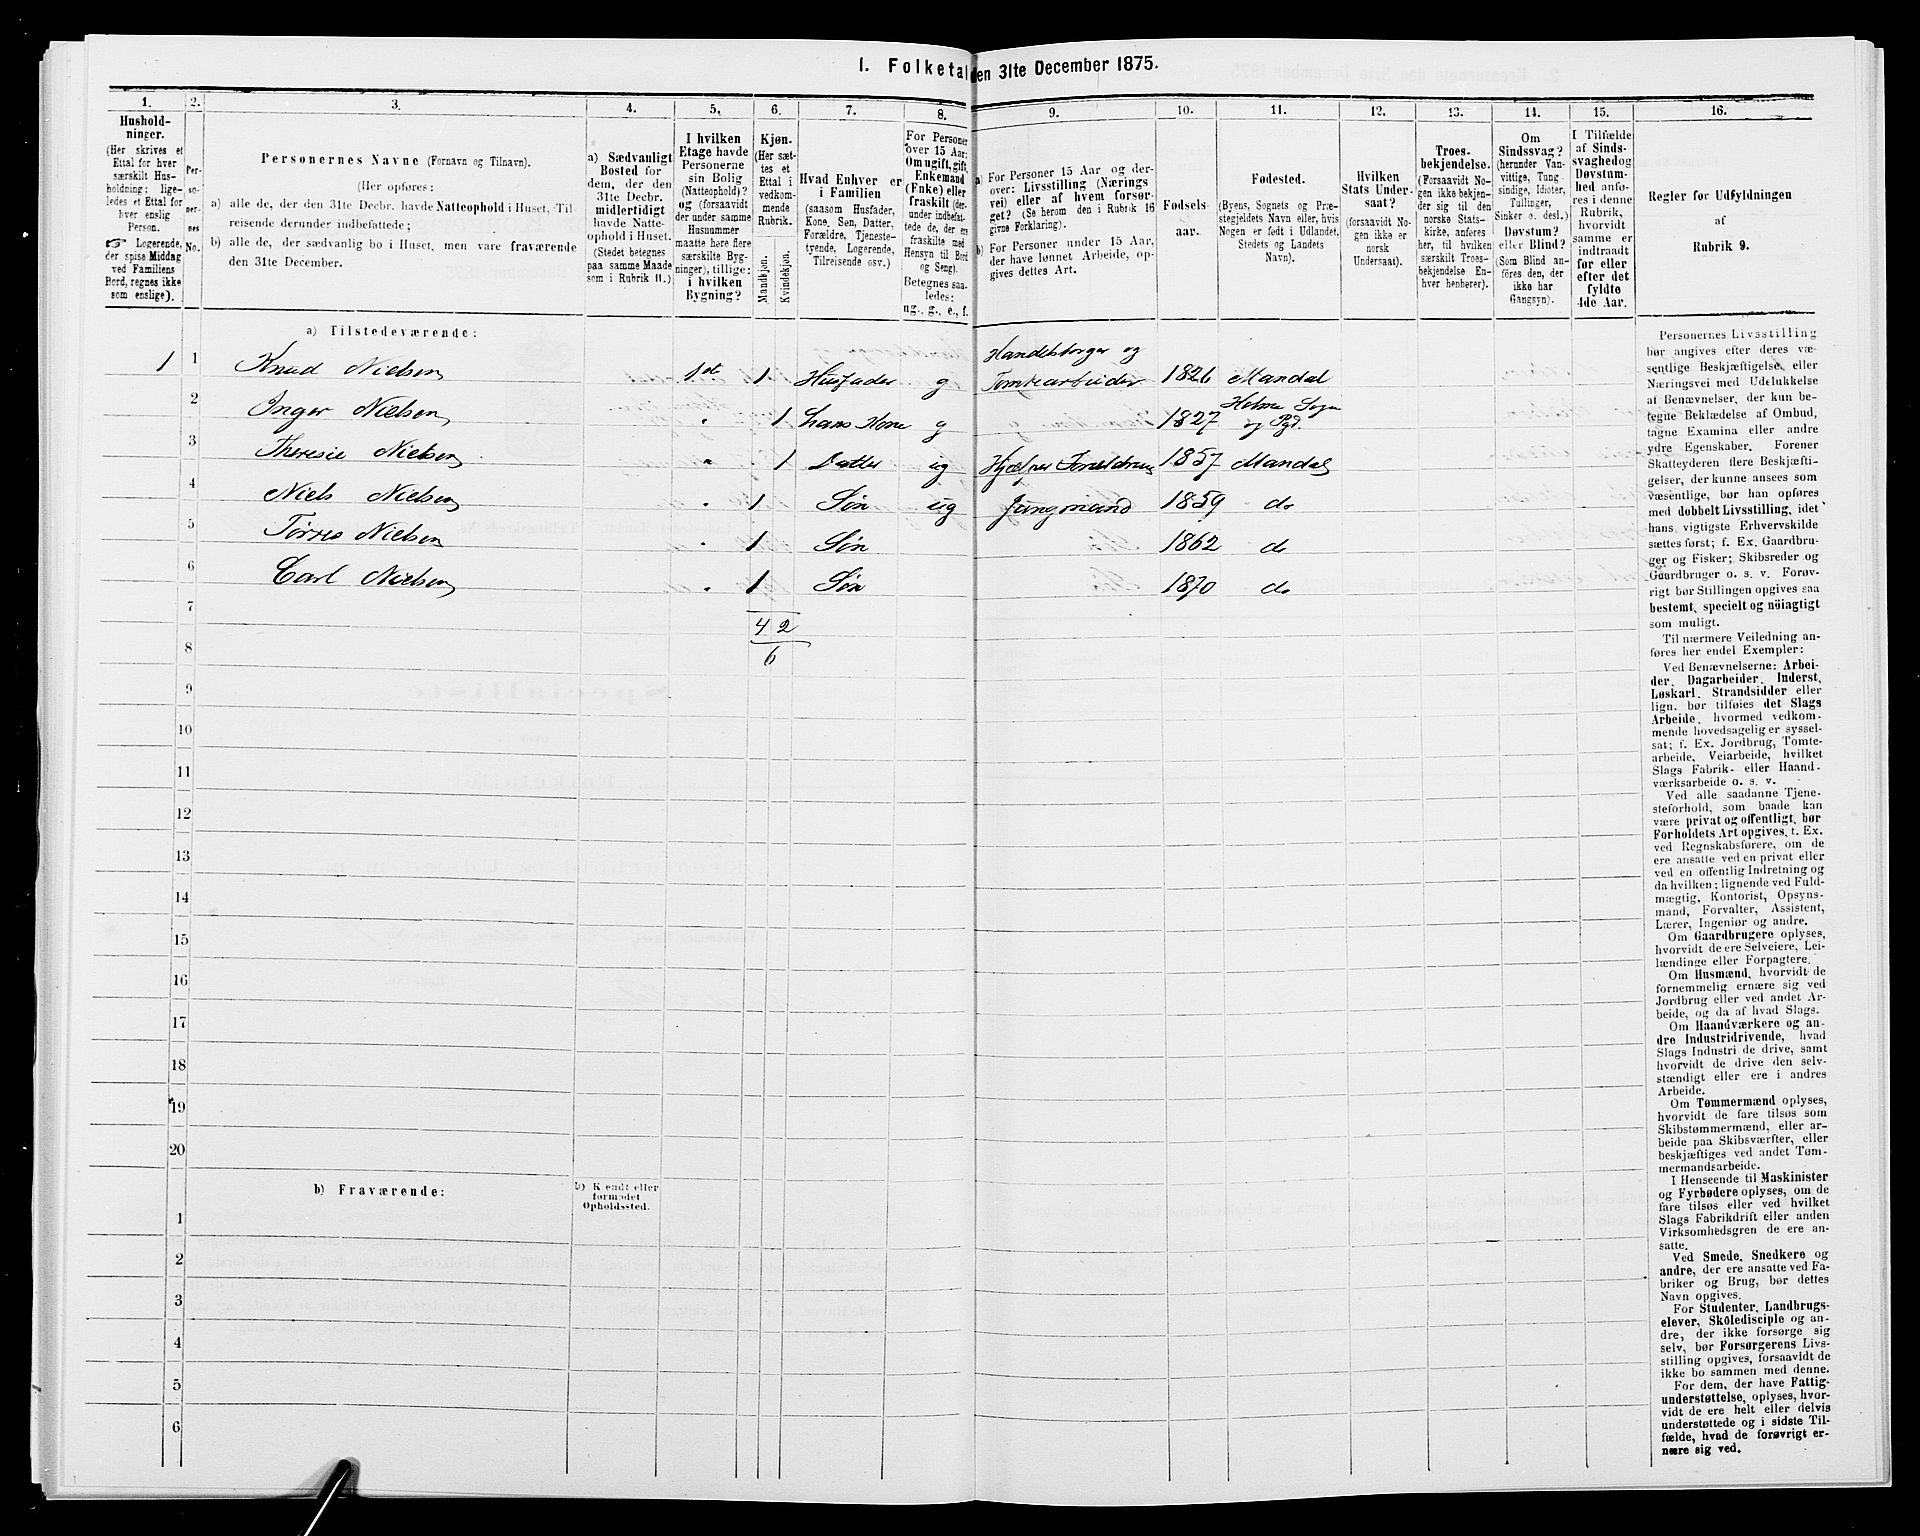 I. Folketal
den 31te December 1875.
1.
2.
3.
4.
5.
6.
7.
8.
9.
10.
11.
12.
13.
14.
15.
16.
Hushold-
ninger.
(Her skrives et
Ettal for hver
særskilt Hus-
holdning; lige-
ledes et Ettal for
hver enslig
Person.
☞ Logerende,
der spise Middag
ved Familiens
Bord, regnes ikke
som enslige).
Per-
so-
ner-
nes
No.
Personernes Navne (Fornavn og Tilnavn).
(Her opføres:
a) alle de, der den 31te Decbr. havde Natteophold i Huset, Til-
reisende derunder indbefattede;
b) alle de, der sædvanlig bo i Huset, men vare fraværende
den 31te December.
a) Sædvanligt
Bosted for
dem, der den
31te Decbr.
midlertidigt
havde Natte-
ophold i Huset.
(Stedet betegnes
paa samme Maade
som i Rubrik 11.)
I hvilken
Etage havde
Personerne
sin Bolig
(Natteophold)?
og (forsaavidt
der under samme
Husnummer
maatte høre flere
særskilte Byg-
ninger), tillige:
i hvilken
Bygning?
Kjøn.
(Her sæt-
tes et
Ettal i
vedkom-
mende
Rubrik.
Mandkjøn.
Kvindekjøn.
Hvad Enhver er
i Familien
(saasom Husfader,
Kone, Søn, Datter,
Forældre, Tjeneste-
tyende, Logerende,
Tilreisende osv.)
For Personer
over 15 Aar:
Om ugift, gift,
Enkemand
(Enke) eller
fraskilt (der-
under indbefat-
tede de, der ere
fraskilte med
Hensyn til Bord
og Seng).
Betegnes saa-
ledes:
ug., g., e., f.
a) For Personer 15 Aar og der-
over: Livsstilling (Nærings
vei) eller af hvem forsør-
get? (Se herom den i Rubrik 16
givne Forklaring).
b) For Personer under 15 Aar,
der have lønnet Arbeide, op-
gives dettes Art.
Fødsels-
aar.
Fødested.
(Byens, Sognets og Præ-
stegjeldets Navn eller, hvis
Nogen er født i Udlandet,
Stedets og Landets
Navn).
Hvilken
Stats Under-
saat?
(forsaavidt No-
gen ikke er
norsk
Undersaat).
Troes-
bekjendelse.
(Forsaavidt No-
gen ikke bekjen-
der sig til den
norske Stats-
kirke, anføres
her, til hvilken
særskilt Troes-
bekjendelse En-
hver henhører).
Om
Sindssvag?
(herunder Van-
vittige, Tung-
sindige, Idioter,
Tullinger,
Sinker o. desl.)
Døvstum?
eller Blind?
(Som Blind an-
føres den, der
ikke har
Gangsyn).
I Tilfælde
af Sinds-
svaghed og
Døvstum-
hed anfø-
res i denne
Rubrik,
hvorvidt
samme er
indtraadt
før eller
efter det
fyldte
4de Aar.
Regler for Udfyldningen
af
Rubrik 9.
a) Tilstedeværende:
1 1 Knud Nielsen 1st 1 Husfader g Handelsborger og
Tomtearbeider 1826 Mandal
2 Inger Nielsen " 1 hans Kone g 1827 Holme Sogn
og Pgd.
3 Theresie Nielsen " 1 Datter ug Hjælper Forældrene 1857 Mandal
4 Niels Nielsen " 1 Søn ug Jungmand 1859 do
5 Tørres Nielsen " 1 Søn 1862 do
6 Carl Nielsen " 1 Søn 1870 do
7
4 2
8
6
9
10
11
12
13
14
15
16
17
18
19
20
b) Fraværende:
b) Kjendt eller
formodet
Opholdssted.
1
2
3
4
5
6
Personernes Livsstilling
bør angives efter deres væ-
sentlige Beskjæftigelse eller
Næringsvei med Udelukkelse
af Benævnelser, der kun be-
tegne Beklædelse af Ombud,
tagne Examina eller andre
ydre Egenskaber. Forener
Skatteyderen flere Beskjæfti-
gelser, der kunne ansees som
væsentlige, bør han opføres
med dobbelt Livsstilling, idet
hans vigtigste Erhvervskilde
sættes først; f. Ex. Gaardbru-
ger og Fisker; Skibsreder og
Gaardbruger o. s. v. Forøv-
rigt bør Stillingen opgives saa
bestemt, specielt og nöiagtigt
som muligt.
Til nærmere Veiledning an-
føres her endel Exempler:
Ved Benævnelserne: Arbei-
der, Dagarbeider, Inderst,
Løskarl, Strandsidder eller
lign. bør tilføies det Slags
Arbeide, hvormed vedkom-
mende hovedsagelig er syssel-
sat; f. Ex. Jordbrug, Tomte-
arbeide, Veiarbeide, hvilket
Slags Fabrik- eller Haand-
værksarbeide o. s. v.
Ved alle saadanne Tjene-
steforhold, som baade kan
være privat og offentligt, bør
Forholdets Art opgives, t. Ex.
ved Regnskabsførere, om de
ere ansatte ved en privat eller
ved en offentlig Indretning og
da hvilken; lignende ved Fuld-
mægtig, Kontorist, Opsyns-
mand, Forvalter, Assistent,
Lærer, Ingeniør og andre.
Om Gaardbrugere oplyses,
hvorvidt de ere Selveiere, Lei-
lændinge eller Forpagtere.
Om Husmænd, hvorvidt de
fornemmelig ernære sig ved
Jordbrug eller ved andet Ar-
beide, og da af hvad Slags.
Om Haandværkere og an-
dre Industridrivende, hvad
Slags Industri de drive, samt
hvorvidt de drive den selv-
stændigt eller ere i andres
Arbeide.
Om Tømmermænd oplyses,
hvorvidt de fare tilsøs som
Skibstømmermænd, eller ar-
beide paa Skibsværfter, eller
beskjæftiges ved andet Tøm-
mermandsarbeide.
I Henseende til Maskinister
og Fyrbødere oplyses, om de
fare tilsøs eller ved hvilket
Slags Fabrikdrift eller anden
Virksomhedsgren de ere an-
satte.
Ved Smede, Snedkere og
andre, der ere ansatte ved Fa-
briker og Brug, bør dettes
Navn opgives.
For Studenter, Landbrugs-
elever, Skoledisciple og an-
dre, der ikke forsørge sig
selv, bør Forsørgerens Livs-
stilling opgives, forsaavidt de
ikke bo sammen med denne.
For dem, der have Fattig-
understøttelse, oplyses, hvor-
vidt de ere helt eller delvis
understøttede og i sidste Til-
fælde, hvad de forøvrigt er-
nære sig ved.